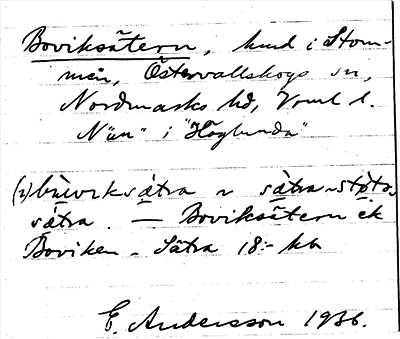 Boviksätern, hmd i Stom-
men, Östervallskogs sn,
Nordmarks hd, Vrml l.
N "än" i "Höglunda"
(2) bùwiksä̀tra ~ sä̀tra-støta-
sä̀tra. — Boviksätern ek
Boviken - Sätra 18:- kb
E. Andersson 1936.